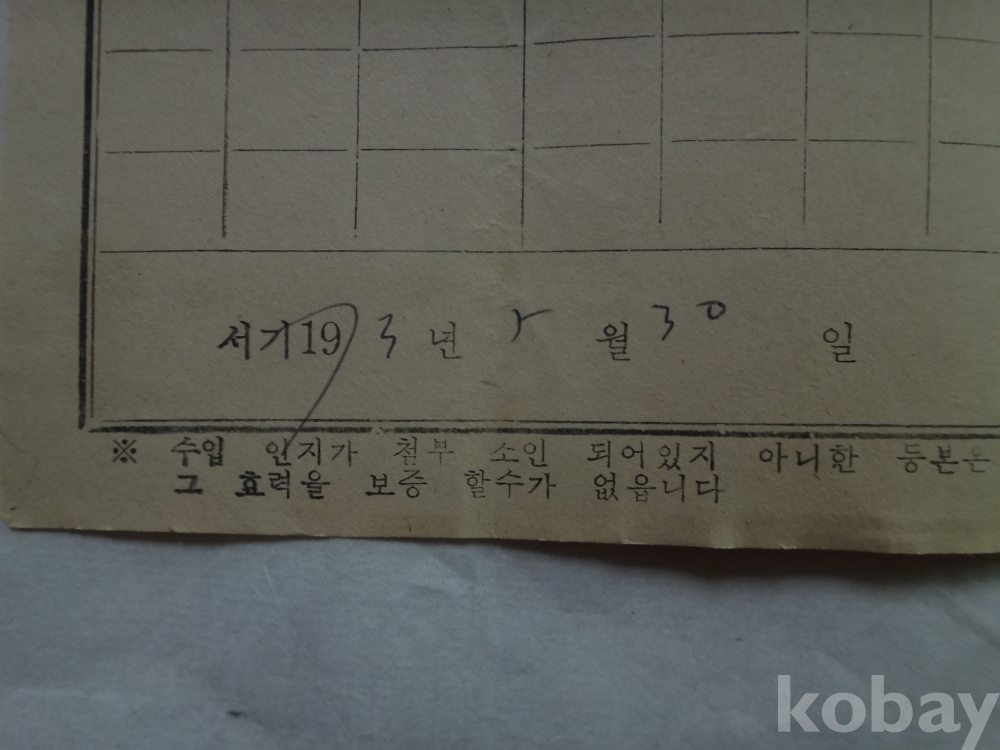 서기1973년 5월 30일
※ 수입 인지가 첨부 소인 되어있지 아니한 등본은
그 효력을 보증 할수가 없읍니다
kobay